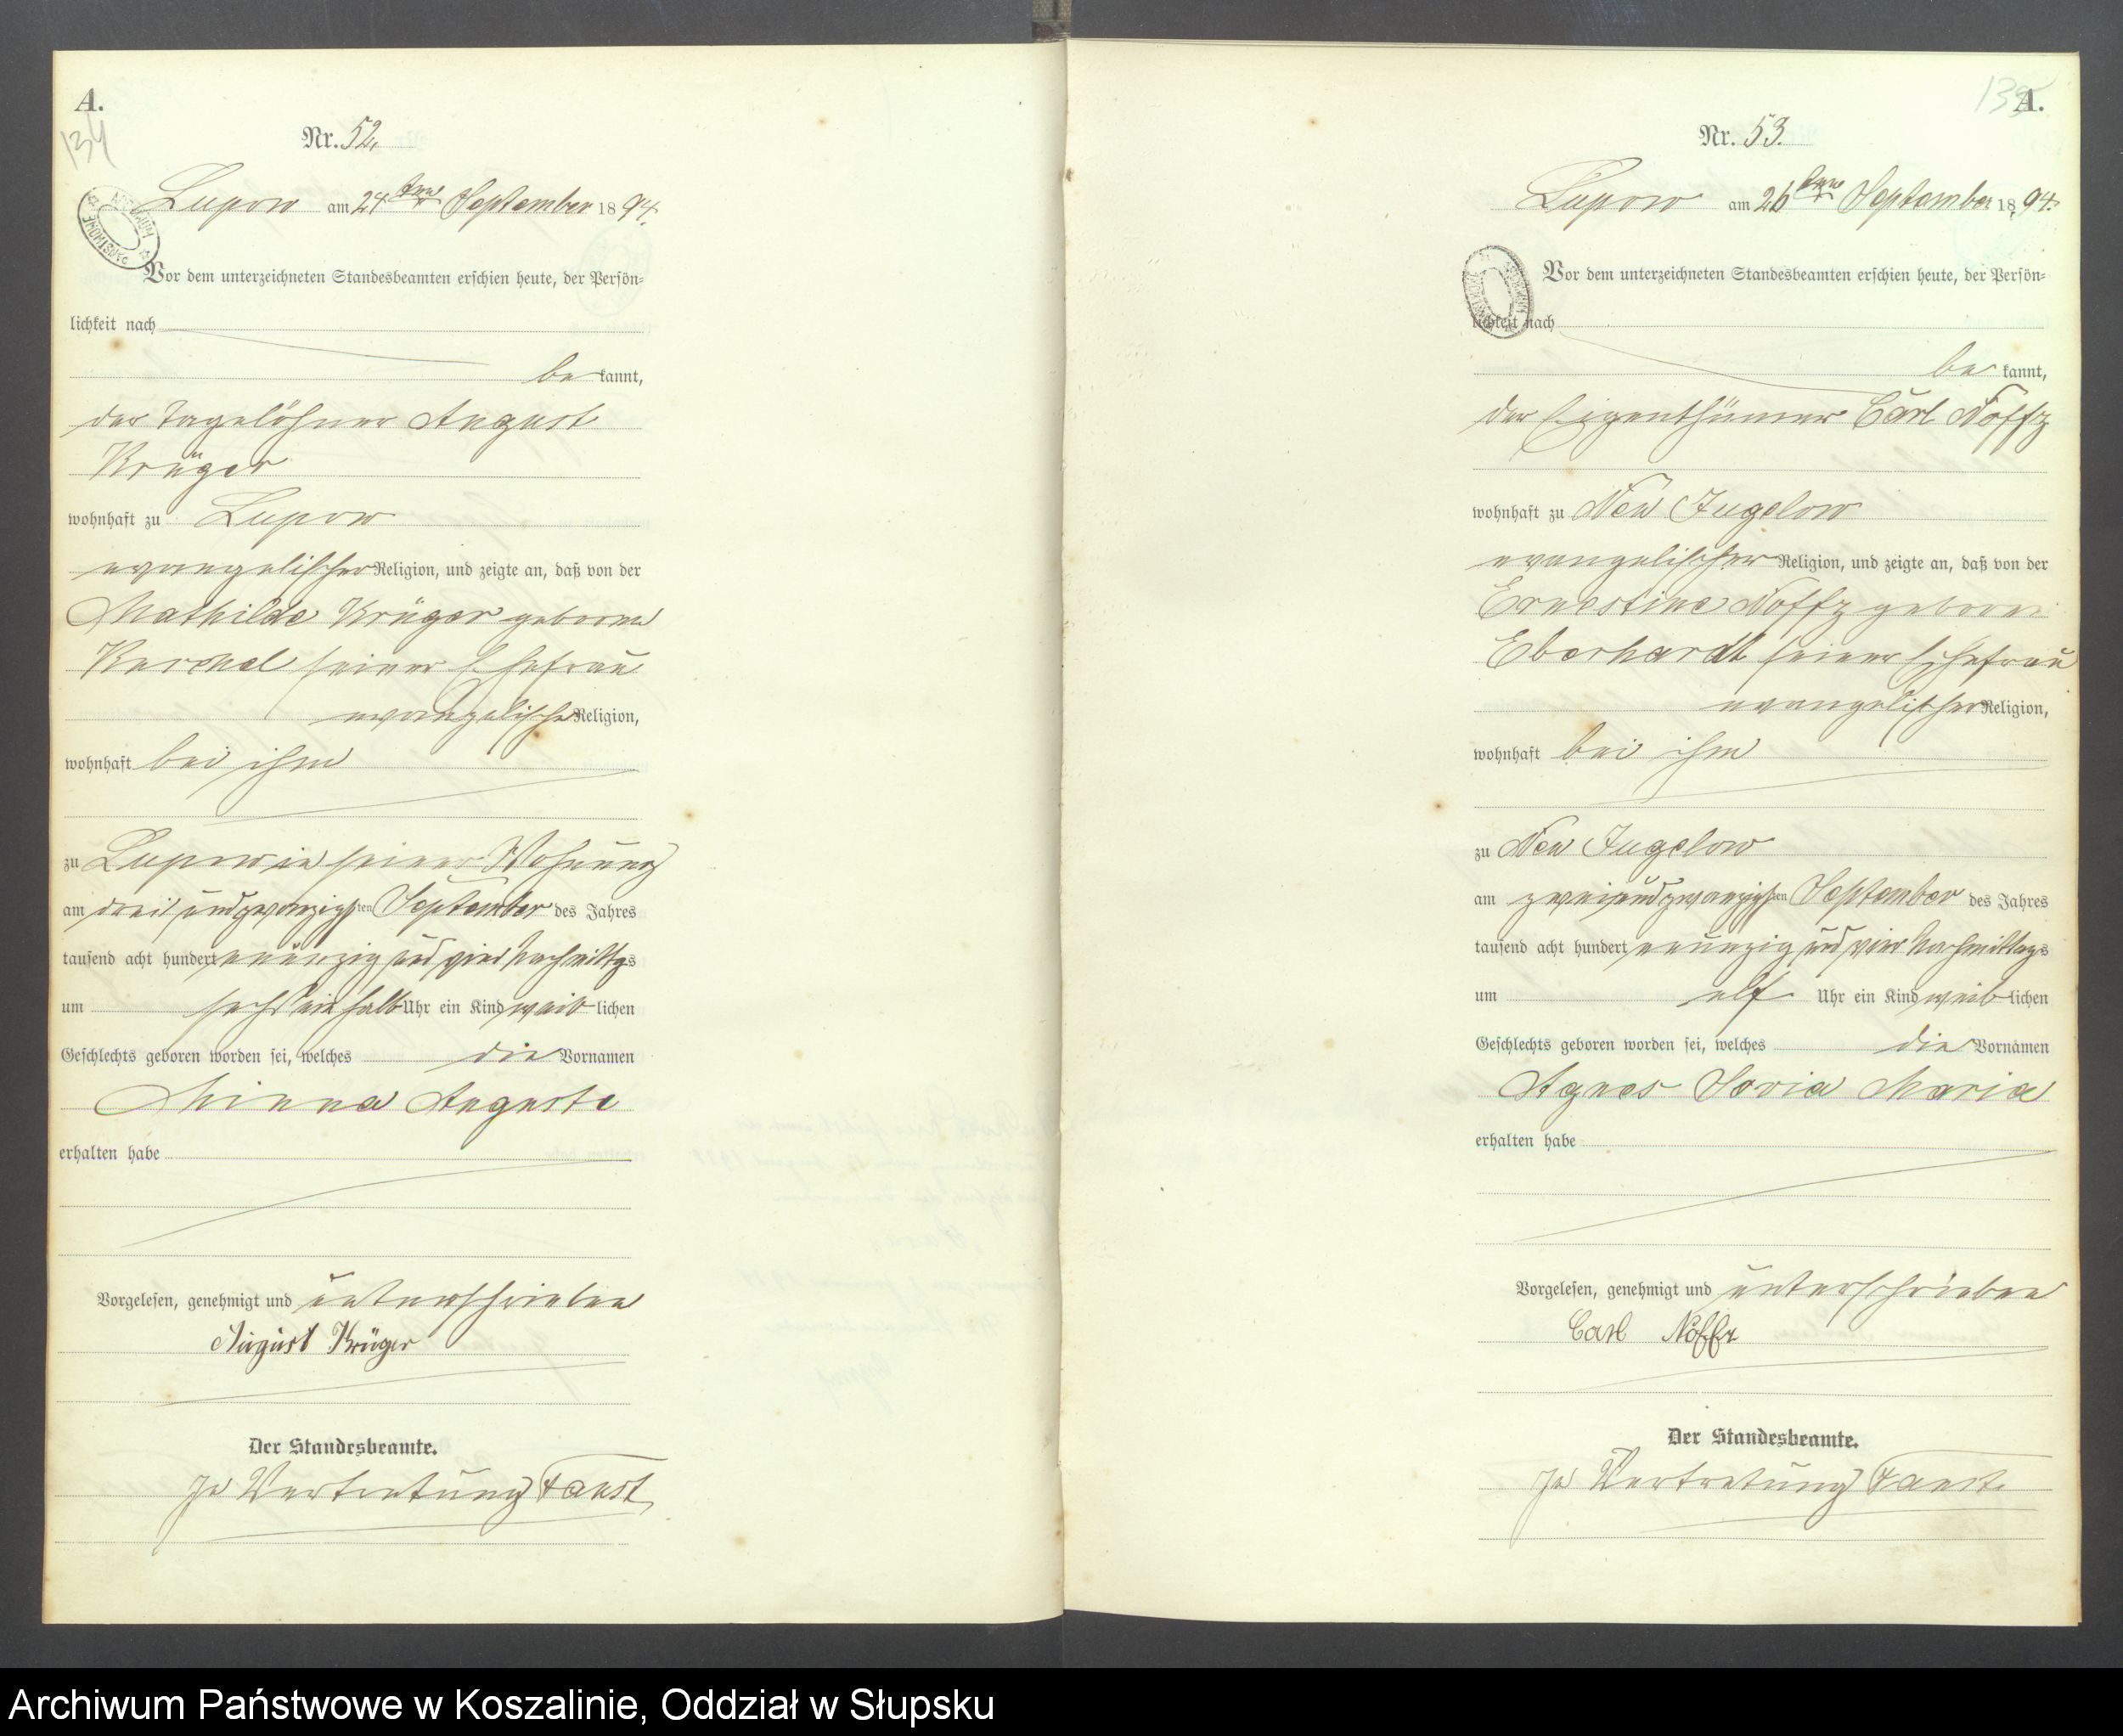 A.
134
Nr. 52.
Lupow am 24ten September 1894.
Vor dem unterzeichneten Standesbeamten erschien heute, der Persön-
lichkeit nach
be kannt,
der Tagelöhner August
Krüger
wohnhaft zu Lupow
evangelischer Religion, und zeigte an, daß von der
Mathilde Krüger geborne
seiner Ehefrau
evangelischer Religion,
wohnhaft bei ihm
zu Lupow in seiner Wohnung
am drei und zwanzigsten September des Jahres
tausend acht hundert neunzig und vier Nachmittags
um sechs ein halb Uhr ein Kind weiblichen
Geschlechts geboren worden sei, welches die Vornamen
Minna Auguste
erhalten habe
Vorgelesen, genehmigt und unterschrieben
August Krüger
Der Standesbeamte.
In Vertretung Faust
135
A.
Nr. 53.
Lupow am 26ten September 1894.
Vor dem unterzeichneten Standesbeamten erschien heute, der Persön-
lichkeit nach
be kannt,
der Eigenthümer Carl Noffz
wohnhaft zu Neu Jugelow
evangelischer Religion, und zeigte an, daß von der
Ernestine Noffz geborne
Eberhardt seiner Ehefrau
evangelischer Religion,
wohnhaft bei ihm
zu Neu Jugelow
am zwei und zwanzigsten September des Jahres
tausend acht hundert neunzig und vier Nachmittags
um elf Uhr ein Kind weiblichen
Geschlechts geboren worden sei, welches die Vornamen
Agnes Maria
erhalten habe
Vorgelesen, genehmigt und unterschrieben
Carl Noffz
Der Standesbeamte.
In Vertretung Faust.
Archiwum Państwowe w Koszalinie, Oddział w Słupsku